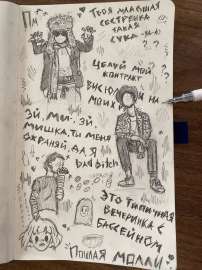 Пи
Твоя младшая
сестрёнка
такая
сука -ya-ya
? ?
Целуй мой
контракт
висю
на
моих
Эй, Ми-эй,
Мишка, ты меня
охраняй, да я
bad bitch
Это типичная
вечеринка с
бассейном
Пошлая Молли